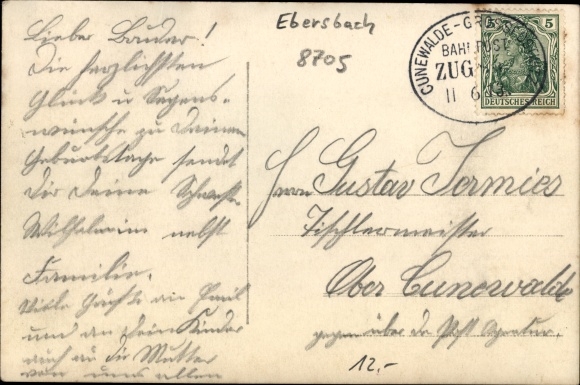 Ebersbach
8705
CUNEWALDE-GR
BAHNPOST
ZUG
11 6 13
5 5
DEUTSCHES REICH
Lieber Bruder!
Die herzlichsten
Glück u Segens-
wünsche zu Deinem
Geburtstage sendet
Dir Deine Schwester
Wilhelmine nebst
Familie.
Viele Grüße an Emil
und an Deine Kinder
auch an die Mutter
von uns allen
Herrn Gustav Jermies
Tischlermeister
Ober Cunewalde
gegenüber der Post Agentur.
12.-